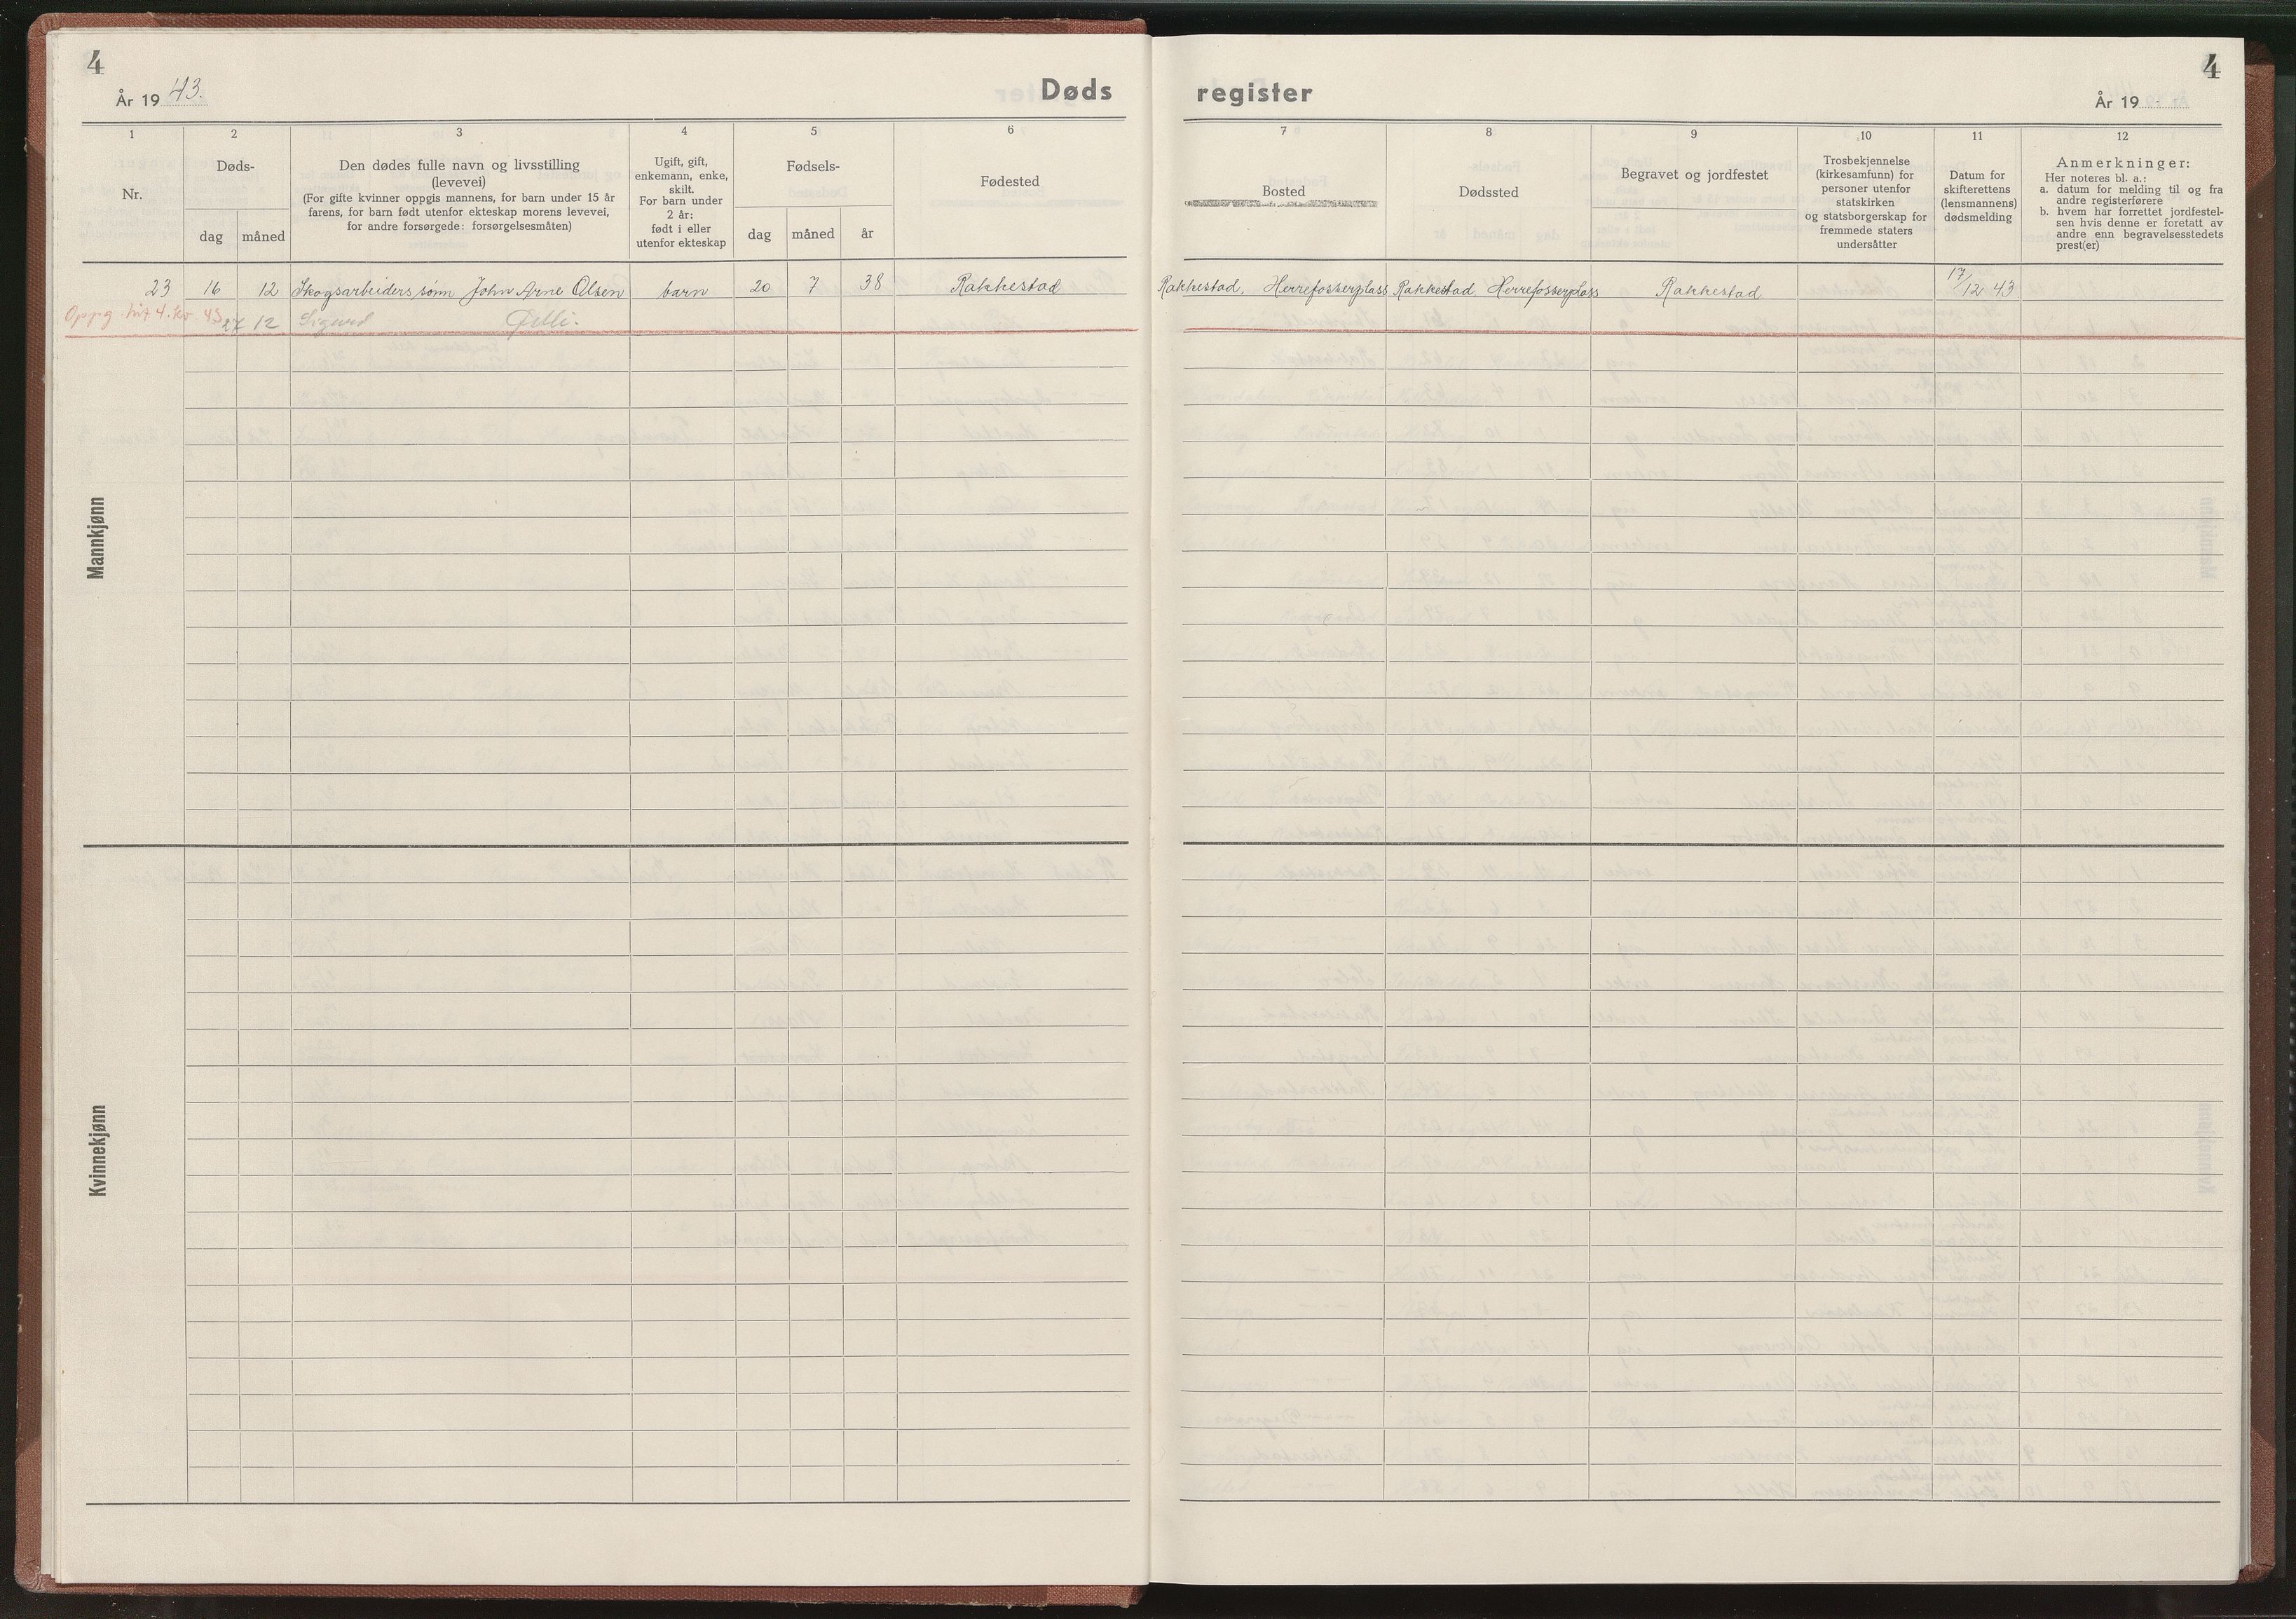 4
År 19 43.
Døds
1
2
3
4
5
6
Nr.
Døds-
dag
måned
Den dødes fulle navn og livsstilling
(levevei)
(For gifte kvinner oppgis mannens, for barn under 15 år
farens, for barn født utenfor ekteskap morens levevei,
for andre forsørgede: forsørgelsesmåten)
Ugift, gift,
enkemann, enke,
skilt.
For barn under
2 år:
født i eller
utenfor ekteskap
Fødsels-
dag
måned
år
Fødested
23 16 12 Skogsarbeiders sønn John Arne Olsen barn 20 7 38 Rakkestad
Oppg. hit 4. kv 43
27 12 Sigurd
Mannkjønn
Kvinnekjønn
4
register
År 19
7
8
9
10
11
12
Bosted
Dødssted
Begravet og jordfestet
Trosbekjennelse
(kirkesamfunn) for
personer utenfor
statskirken
og statsborgerskap for
fremmede staters
undersåtter
Datum for
skifterettens
(lensmannens)
dødsmelding
Anmerkninger:
Her noteres bl. a.:
a. datum for melding til og fra
andre registerførere
b. hvem har forrettet jordfestel-
sen hvis denne er foretatt av
andre enn begravelsesstedets
prest(er)
Rakkestad, Herrefosserplass Rakkestad Herrefosserplass Rakkestad 17/12 43